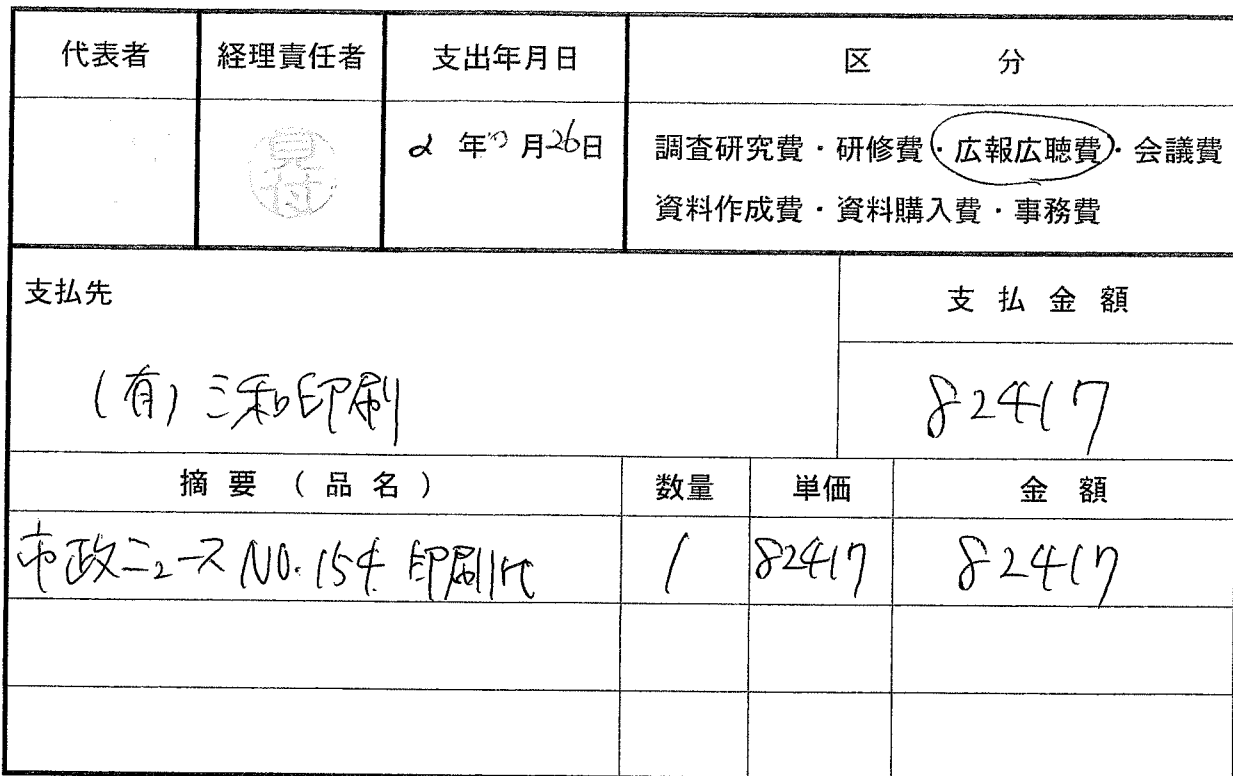 代表者 経理責任者 支出年月日 区 分
見付
2 年 月26日
調査研究費・研修費・広報広聴費・会議費
資料作成費・資料購入費・事務費
支払先
支払金額
(有)三和印刷
82417
摘要(品名) 数量 単価 金額
市政ニュース NO.154 印刷代 1 82417 82417